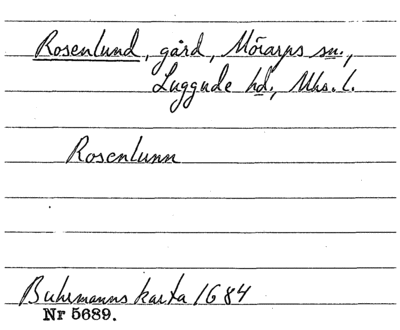 Rosenlund, gård, Mörarps sn.,
Luggude hd., Mhs. l.
Rosenlunn
Buhrmanns karta 1684
Nr 5689.